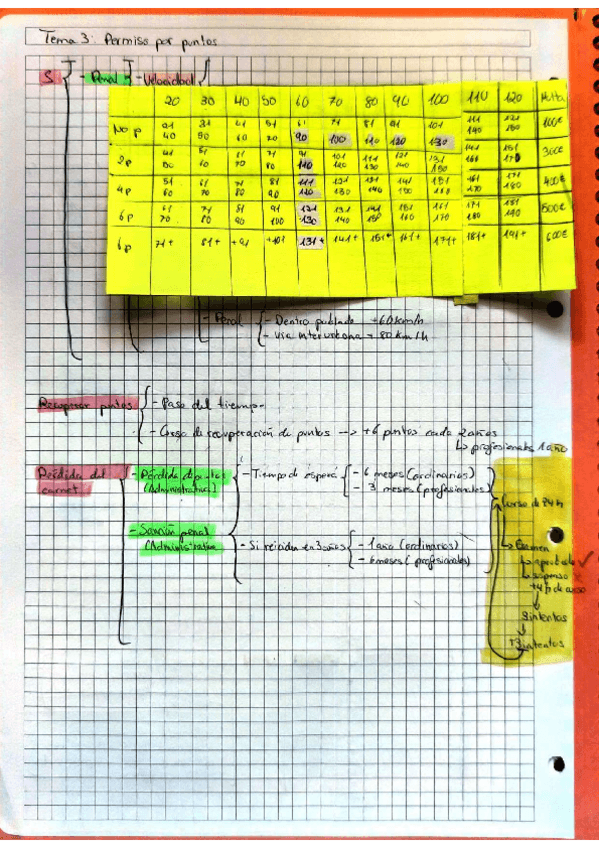 Tema 3: Permiso por puntos
S. - Penal - Velocidad
20 30 40 50 60 70 80 90 100 110 120 Multa
No p 21 40 31 50 41 60 51 70 61 90 71 100 81 110 91 120 101 130 111 140 121 150 100€
2p 41 50 51 60 61 70 71 80 91 110 101 120 111 130 121 140 131 150 141 160 151 170 300€
4p 51 60 61 70 71 80 81 90 111 120 121 130 131 140 141 150 151 160 161 170 171 180 400€
6p 61 70 71 80 81 90 91 100 121 130 131 140 141 150 151 160 161 170 171 180 181 190 500€
6p 71+ 81+ +91 +101 131+ 141+ 151+ 161+ 171+ 181+ 191+ 600€
- Penal - Dentro poblado +60km/h
- Via interurbana + 80 km/h
Recuperar puntos - Paso del tiempo
- Curso de recuperación de puntos → +6 puntos cada 2 años
↳ profesionales 1 año
Pérdida del carnet - Pérdida de puntos (Administrativa) - Tiempo de espera - 6 meses (ordinarios)
- 3 meses (profesionales)
Curso de 24h
- Sanción penal (Administrativa - Si reincide en 3 años - 1 año (ordinarios)
- 6 meses (profesionales)
↳ Examen
↳ apartado ✓
↳ suspenso x
+4h de curso
3 intentos
+3 intentos